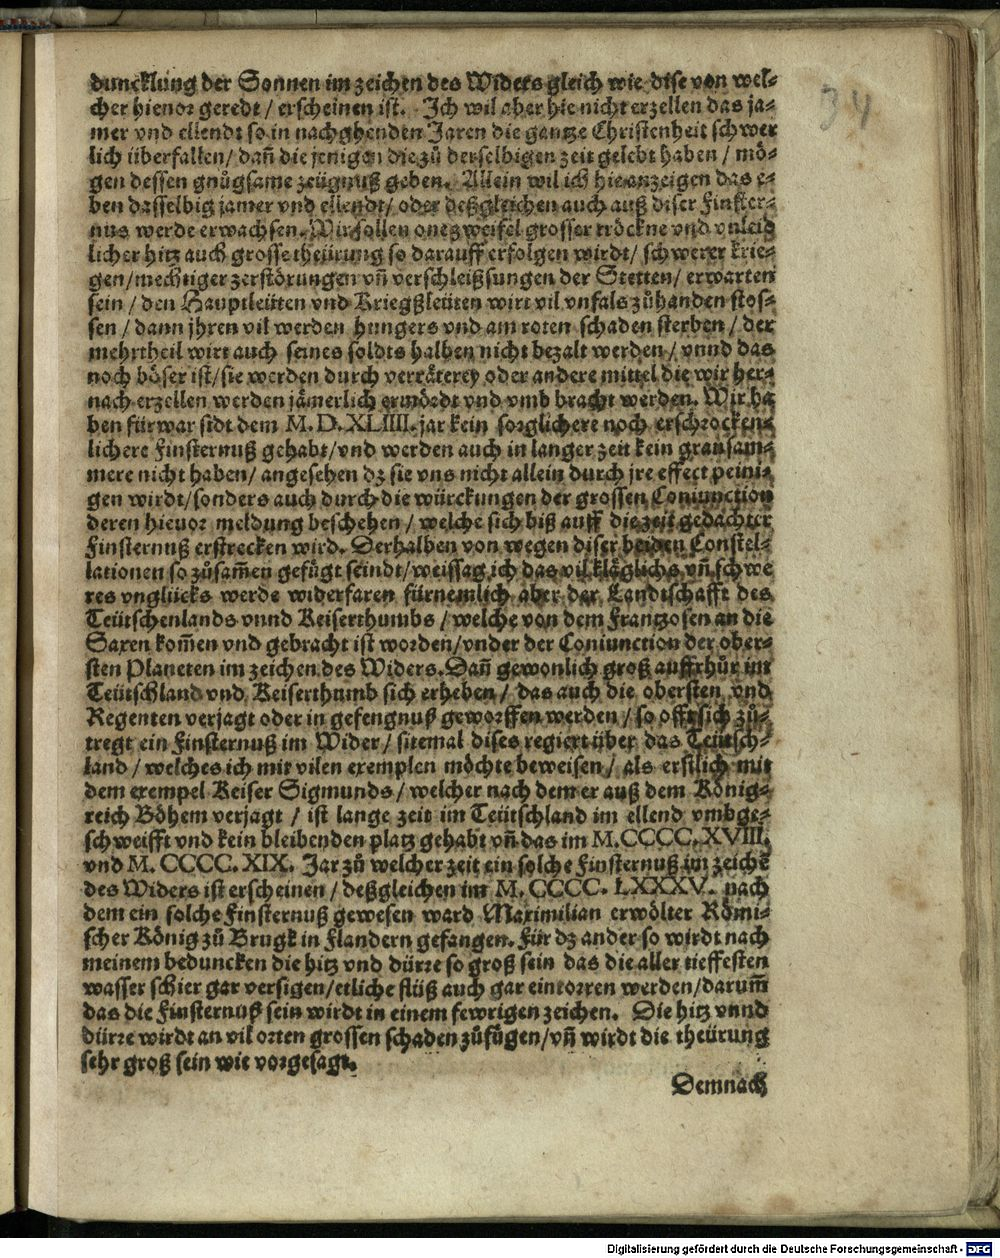 duncklung der Sonnen im zeichen des Widers gleich wie dise von wel-
cher hieuor geredt / erscheinen ist. Ich wil aber hie nicht erzellen das ja-
mer vnd ellendt so in nachghenden Jaren die gantze Christenheit schwer
lich überfallen / dañ die jenigen die zů derselbigen zeit gelebt haben / mö-
gen dessen gnůgsame zeügnuß geben. Allein wil ich hie anzeigen das e-
ben dasselbig jamer vnd ellendt / oder deßgleichen auch auß diser Finster-
nus werde erwachsen. Wir sollen one zweifel grosser tröckne vnd vnleid
licher hitz auch grosse theürung so darauff erfolgen wirdt / schwerer krie-
gen / mechtiger zerstörungen vñ verschleißsungen der Stetten / erwarten
sein / den Hauptleüten vnd Kriegßleüten wirt vil vnfals zůhanden stos-
sen / dann jhren vil werden hungers vnd am roten schaden sterben / der
mehrtheil wirt auch seines soldts halben nicht bezalt werden / vnnd das
noch böser ist / sie werden durch verräterey oder andere mittel die wir her-
nach erzellen werden jämerlich ermördt vnd vmb bracht werden. Wir ha
ben fürwar sidt dem M. D. XLIIII. jar kein sorglichere noch erschrocken-
lichere Finsternuß gehabt / vnd werden auch in langer zeit kein grausam-
mere nicht haben / angesehen dz sie vns nicht allein durch jre effect peini-
gen wirdt / sonders auch durch die würckungen der grossen Coniunction
deren hieuor meldung beschehen / welche sich biß auff die zeit gedachter
Finsternuß erstrecken wird. Derhalben von wegen diser beiden Constel-
lationen so zůsam̃en gefügt seindt / weissag ich das vil kläglichs vñ schwe
res vnglücks werde widerfaren fürnemlich aber der Landtschafft des
Teütschenlands vnnd Keiserthumbs / welche von dem Frantzosen an die
Saxen kom̃en vnd gebracht ist worden / vnder der Coniunction der ober-
sten Planeten im zeichen des Widers. Dañ gewonlich groß auffrhůr im
Teütschland vnd Keiserthumb sich erheben / das auch die obersten vnd
Regenten verjagt oder in gefengnuß geworffen werden / so offt sich zů-
tregt ein Finsternuß im Wider / sitemal dises regiert über das Teütsch-
land / welches ich mit vilen exemplen möchte beweisen / als erstlich mit
dem exempel Keiser Sigmunds / welcher nach dem er auß dem König-
reich Böhem verjagt / ist lange zeit im Teütschland im ellend vmbge-
schweifft vnd kein bleibenden platz gehabt vñ das im M.CCCC.XVIII.
vnd M. CCCC. XIX. Jar zů welcher zeit ein solche Finsternuß im zeichẽ
des Widers ist erscheinen / deßgleichen im M. CCCC. LXXXV. nach
dem ein solche Finsternuß gewesen ward Maximilian erwölter Römi-
scher König zů Brugk in Flandern gefangen. Für dz ander so wirdt nach
meinem beduncken die hitz vnd dürre so groß sein das die aller tieffesten
wasser schier gar versigen / etliche flüß auch gar eintorren werden / darum̃
das die Finsternuß sein wirdt in einem fewrigen zeichen. Die hitz vnnd
dürre wirdt an vil orten grossen schaden zůfügen / vñ wirdt die theürung
sehr groß sein wie vorgesagt.
Demnach
34
Digitalisierung gefördert durch die Deutsche Forschungsgemeinschaft - DFG